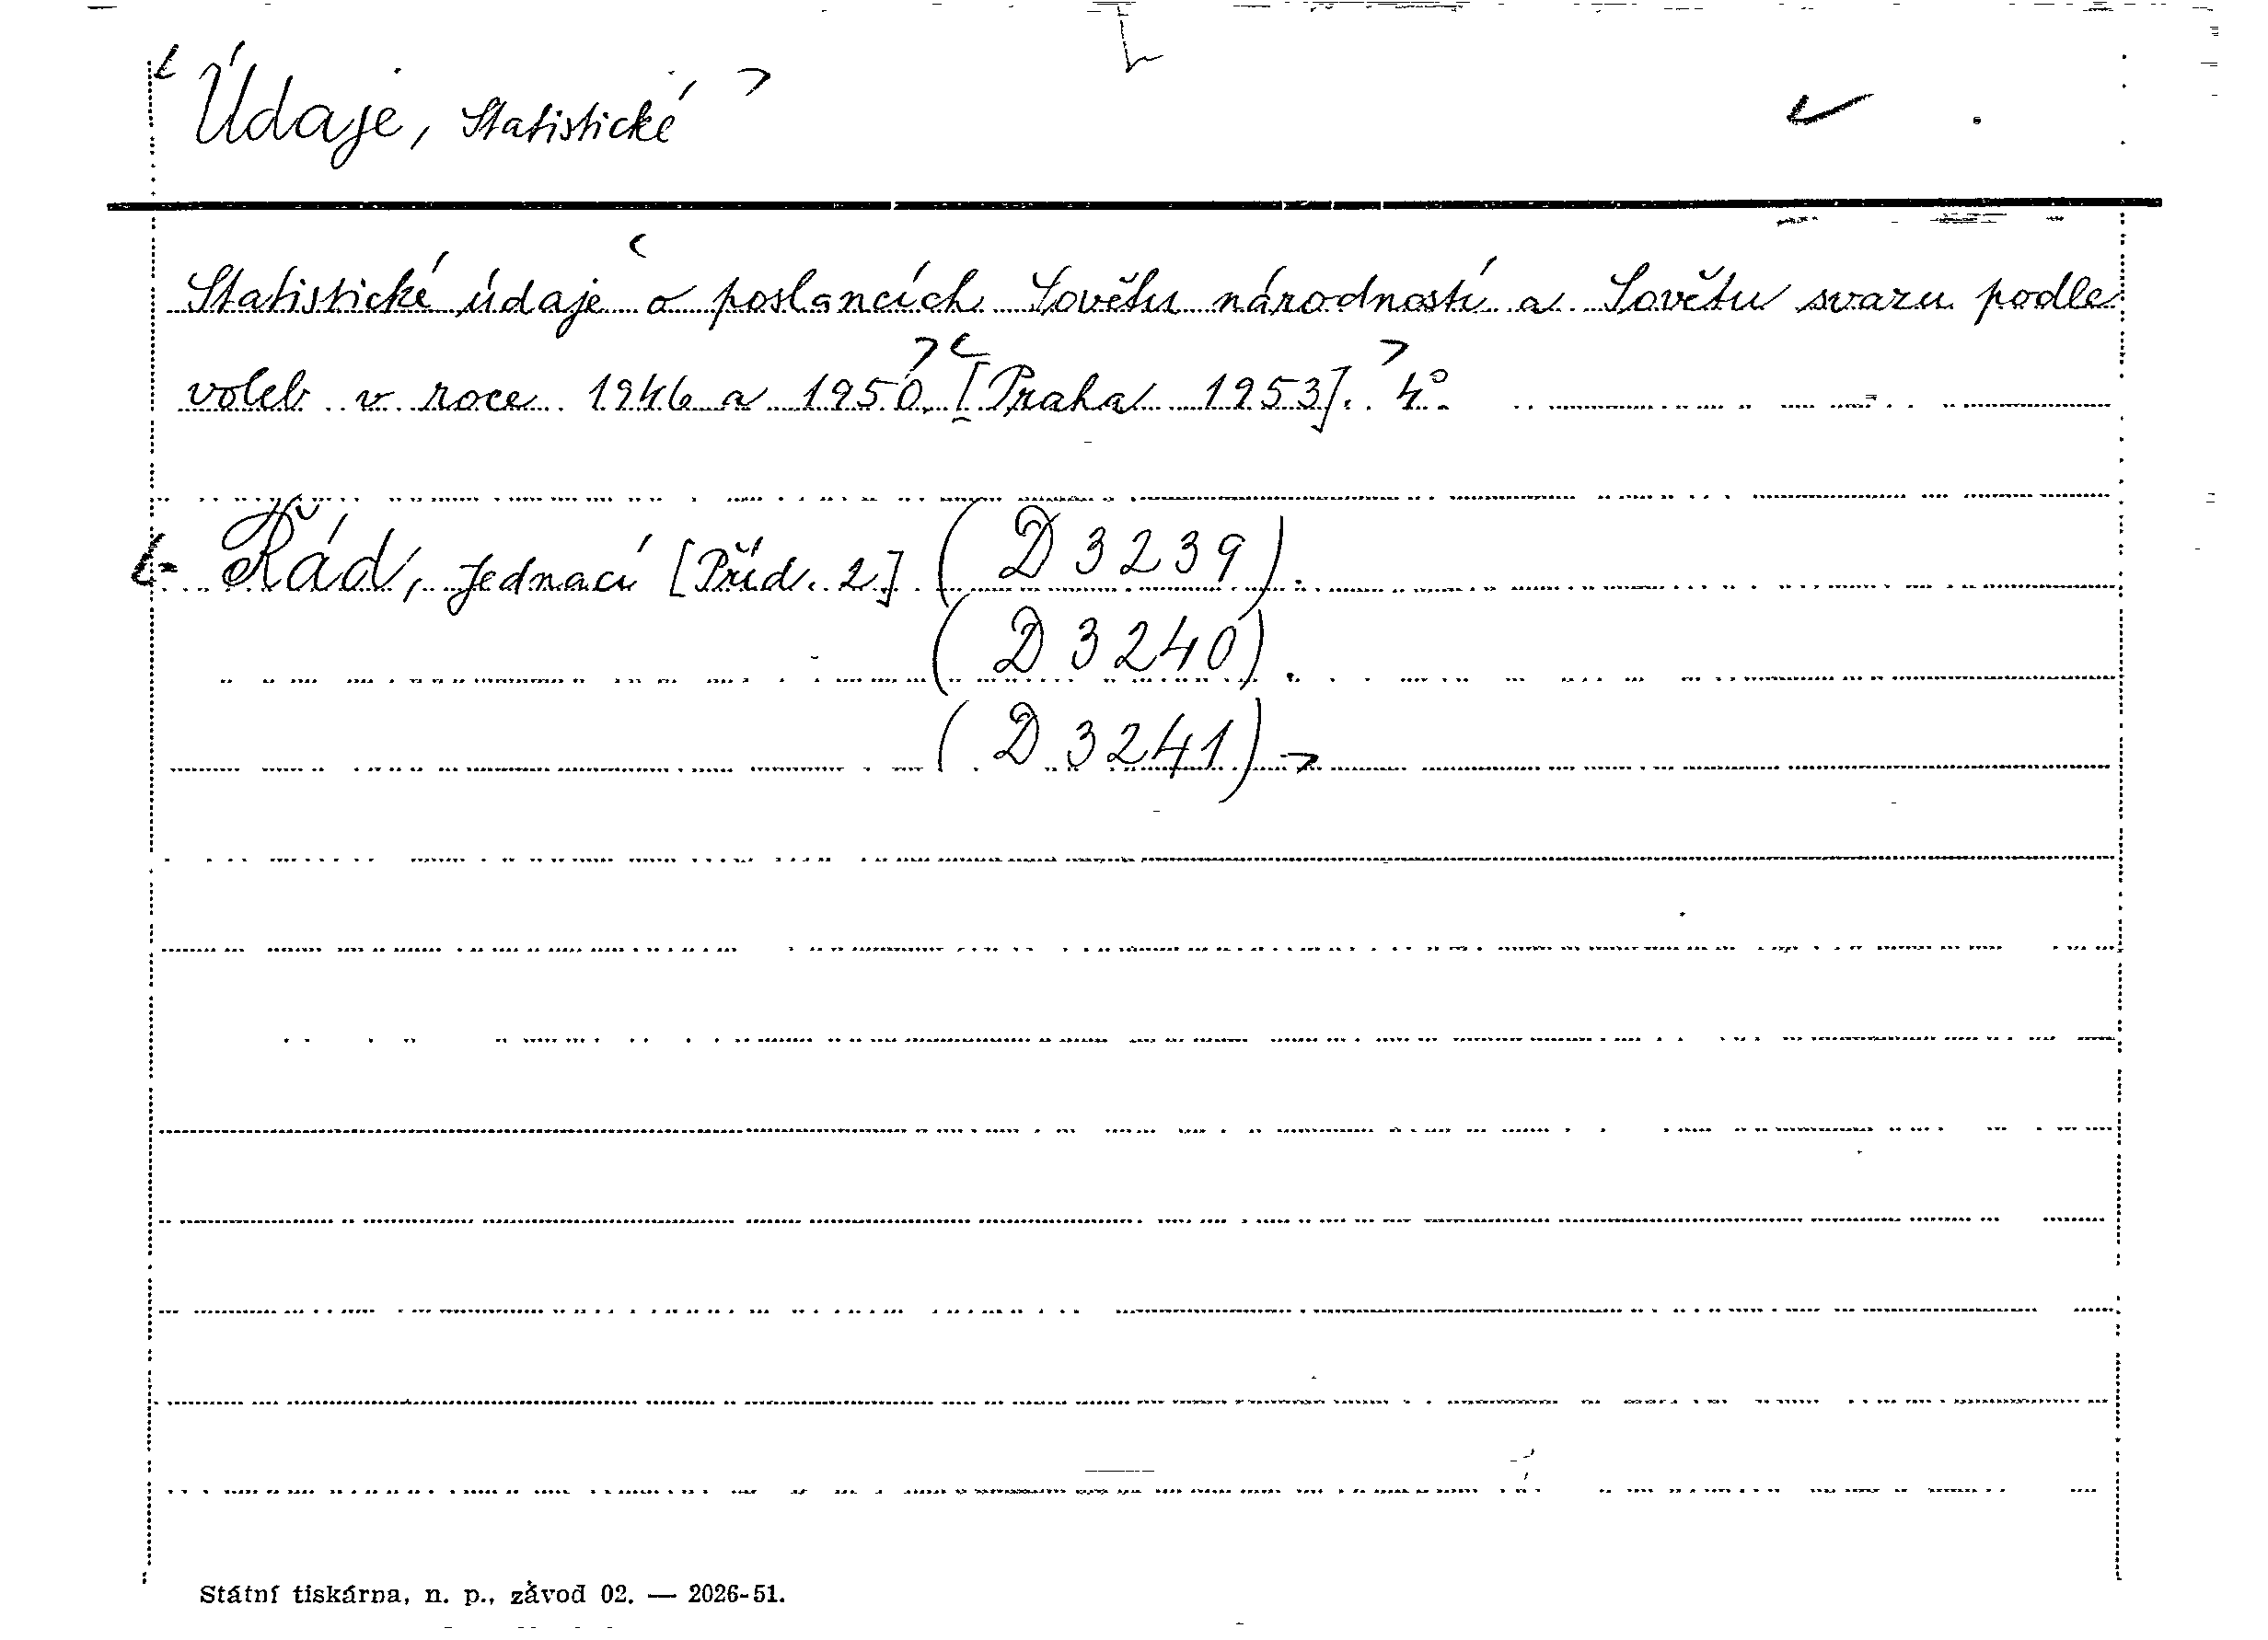 Údaje, Statistické
Statistické údaje o poslancích Sovětu národností a Sovětu svazu podle
voleb v roce 1946 a 1950. [Praha 1953]. 4°.
Řád, Jednací [Příd. 2] (D 3239).
(D 3240).
(D 3241)
Státní tiskárna, n. p., závod 02. — 2026-51.